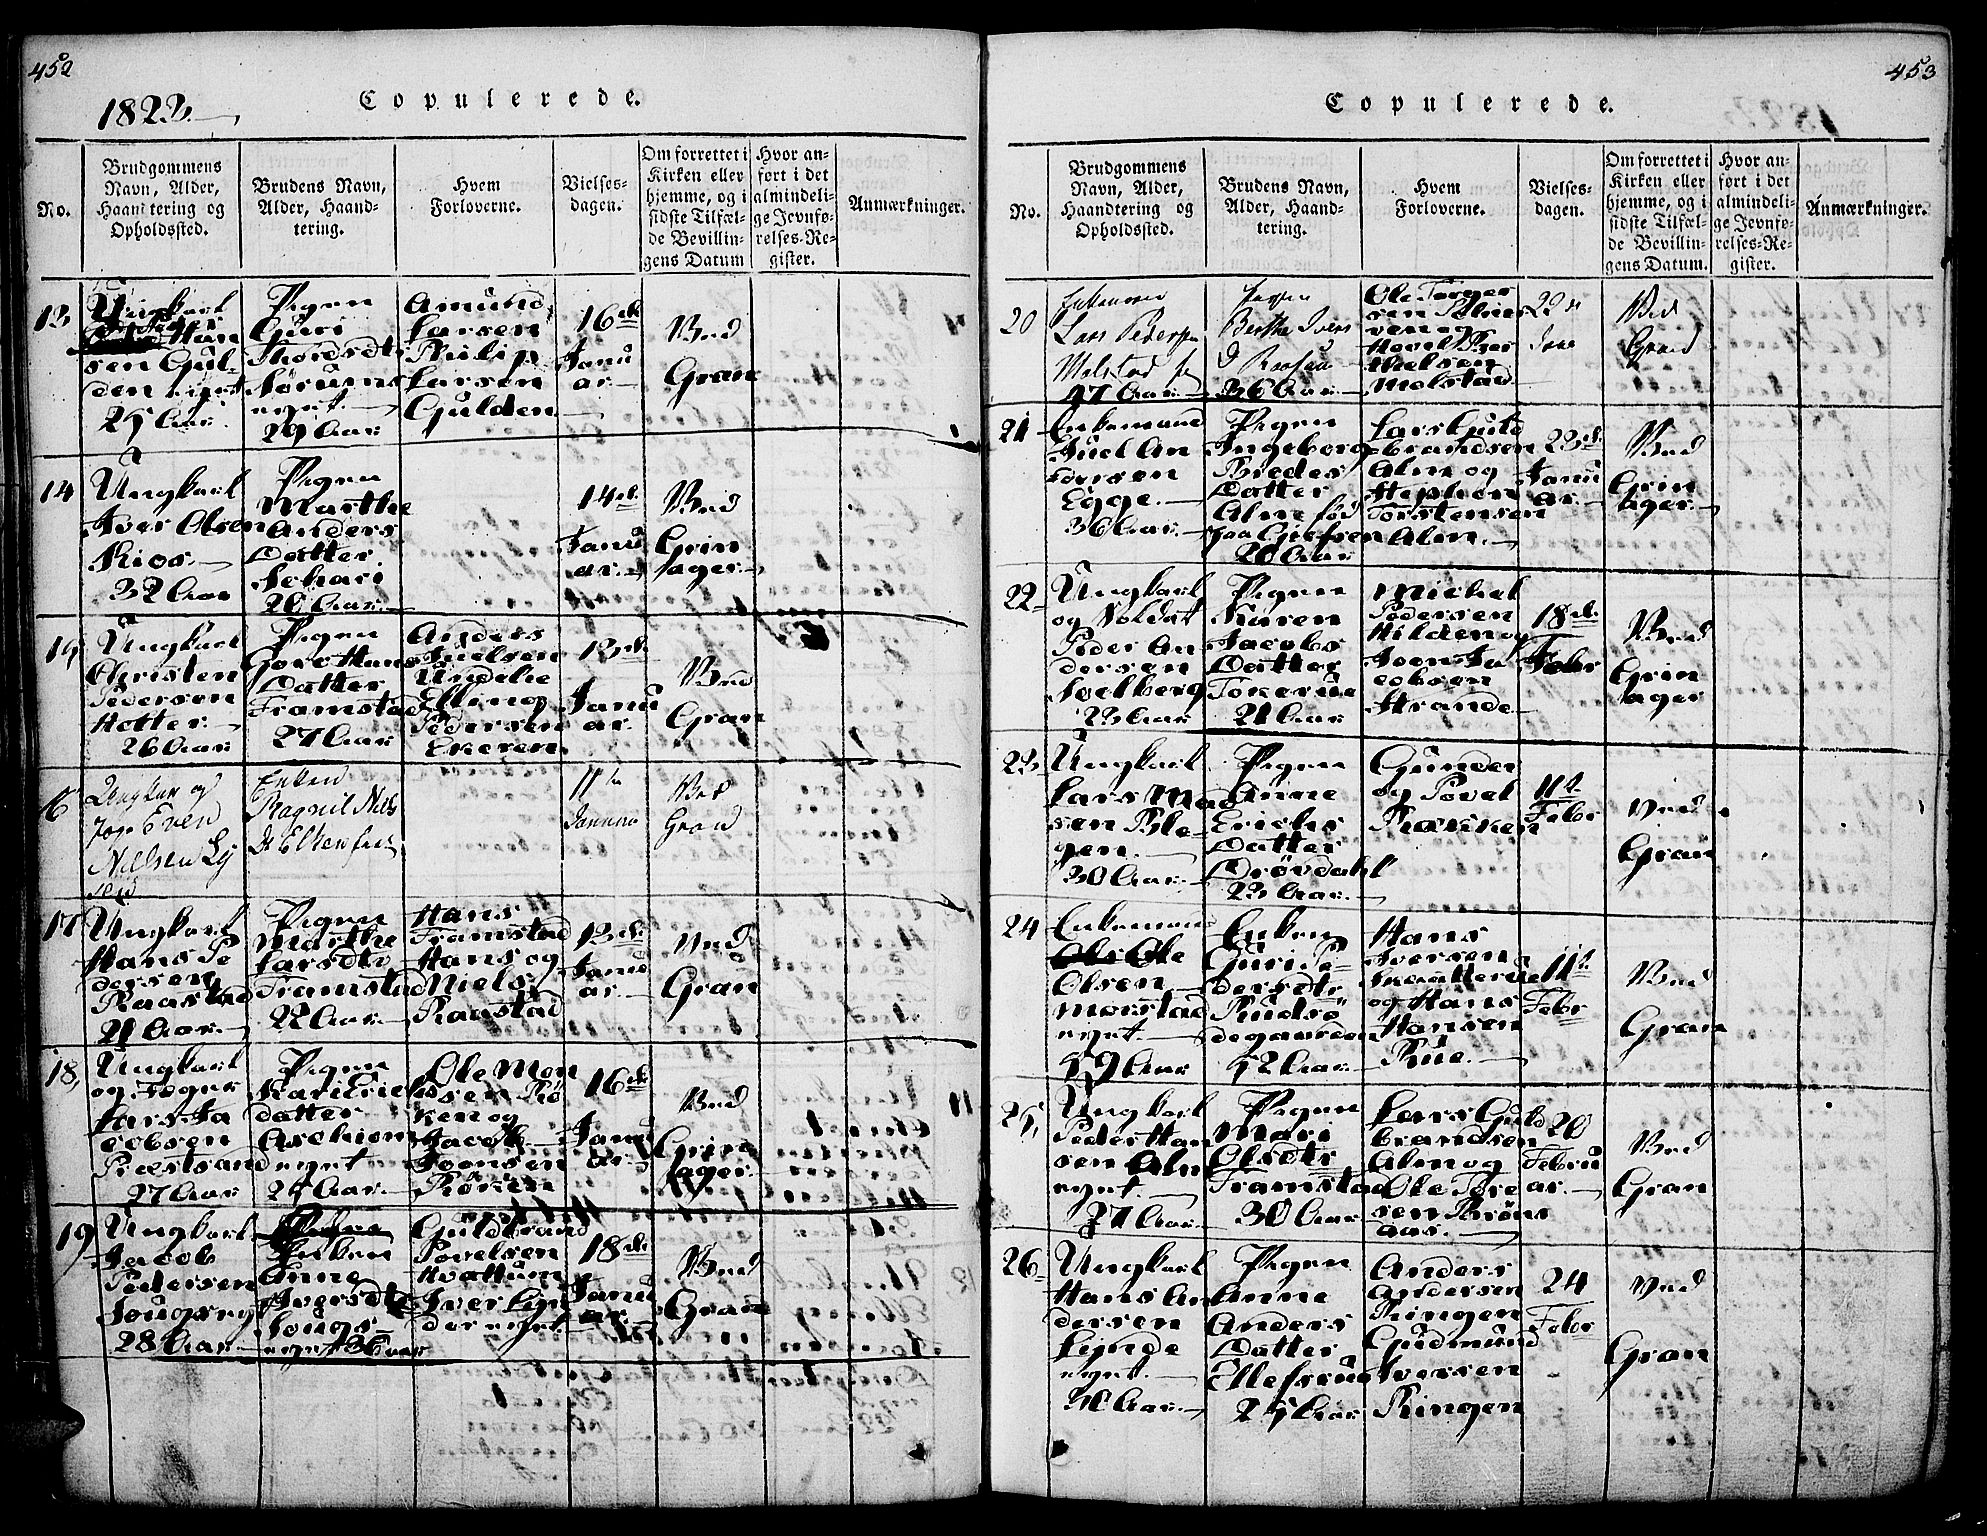 452
1822.
Copulerede.
No.
Brudgommens
Navn, Alder,
Haandtering og
Opholdssted.
Brudens Navn,
Alder, Haand-
tering.
Hvem
Forloverne.
Vielses-
dagen.
Om forrettet i
Kirken eller
hjemme, og i
sidste Tilfæl-
de Bevillin-
gens Datum
Hvor an-
ført i det
almindeli-
ge Jevnfø-
relses-Re-
gister.
Anmærkninger.
13
Ungkarl
Han
sen Gul-
den eignt
25 Aar
Pigen
Guri
Thordsdtr
Sørums
eignt.
29 Aar
Amund
Larsen
Philip
Larsen
Gulden
16de
Janu
ar
Ved
Gran
14
Ungkarl
Iver Olsen
Kios.
32 Aar
Pigen
Marthe
Anders
Datter
Schari
20 Aar
14de
Janu
ar
Ved
Grin
ager.
15
Ungkarl
Christen
Pedersen
Hotter
26 Aar
Pigen
Goro Hans
Datter
Framstad
27 Aar
Anders
Juelsen
Undelie
Elling
Pedersen
Ekeren
13de
Janu
ar.
Ved
Gran
16
Ungkar og
Even
Nielsen Ly
sen
Enken
Ragnil Niels
Dr
11te
Januar
Ved
Gran
17
Ungkarl
Hans Pe
dersen
Raastad
21 Aar.
Pigen
Marthe
Larsdtr
Framstad
22 Aar
Hans
Framstad
Hans og
Niels
Raastad
13de
Janu
ar
Ved
Gran
18,
Ungkarl
og Jæger
Lars Ja
cobsen
Præstsand
27 Aar
Pigen
Kari Erics
datter
Aschiem
eignt
25 Aar
Ole Mon
sen Rö
ken og
Jacob
Joensen
Röken
16de
Janu
ar
Ved
Grin
ager.
19
Ungkarl
Jacob
Pedersen
Sougs ey
28 Aar
Enken
Anne
Iversdtr
Sougs
eignt 36 aar
Guldbrand
Povelsen
Hvattum
Iver Lyn
der eignt
18de
Janu
ar.
Ved
Gran
453
Copulerede.
No.
Brudgommens
Navn, Alder,
Haandtering og
Opholdssted.
Brudens Navn,
Alder, Haand-
tering.
Hvem
Forloverne.
Vielses-
dagen.
Om forrettet i
Kirken eller
hjemme, og i
sidste Tilfæl-
de Bevillin-
gens Datum.
Hvor an-
ført i det
almindeli-
ge Jevnfø-
relses-Re-
gister.
Anmærkninger.
20
Enkemand
Lars Pedersen
Molstad
47 Aar
Pigen
Berthe Ivers
D
36 Aar
Ole Torger
sen
ven og
Melsen
Molstad
22de
Ved
Gran
21
Enkemand
Juel An
dersen
Egge.
36 Aar.
Pigen
Ingeborg
Bredes
Datter
Alm fød
paa Giefsen
20 Aar
Lars Guld
brandsen
Alm og
Stephen
Torstensen
Alm.
23de
Janu
ar.
Ved
Grin
ager.
22
Ungkarl
og Soldat
Peder An
dersen
Soelberg
23 Aar
Pigen
Karen
Jacobs
Datter
Tokerue
21 Aar
Michel
Pedersen
Hilden og
Joen Ja
cobsen
Strande
18de
Febr
Ved
Grin
ager
23
Ungkarl
Lars Mad
sen Ble
gen.
30 Aar
Pigen
Anne
Erichs
Datter
Drövdahl
23 Aar.
Gunder
og Povel
Ræcken
11te
Febr
Ved
Gran
24
Enkemand
Ole
Olsen
Morstad
eignt.
59 Aar
Enken
Guri Pe-
dersdtr
Rudsö
degaarden
52 Aar
Hans
Iversen
Skiaatterud
og Hans
Hansen
Rue.
11te
Febr
Ved
Gran
25,
Ungkarl
Peder Han
sen Alm
eignt.
27 Aar
Pigen
Mari
Olsdtr
Framstad
30 Aar
Lars Guld
brandsen
Alm og
Ole Tore
sen Bröns
aas.
20
Febru
ar.
Ved
Gran
26
Ungkarl
Hans An
dersen
Lynde
eignt.
30 Aar
Pigen
Anne
Anders
Datter
Helfsrud
25 Aar
Anders
Andersen
Ringen
Gudmund
Iversen
Ringen
24
Febr
Ved
Gran